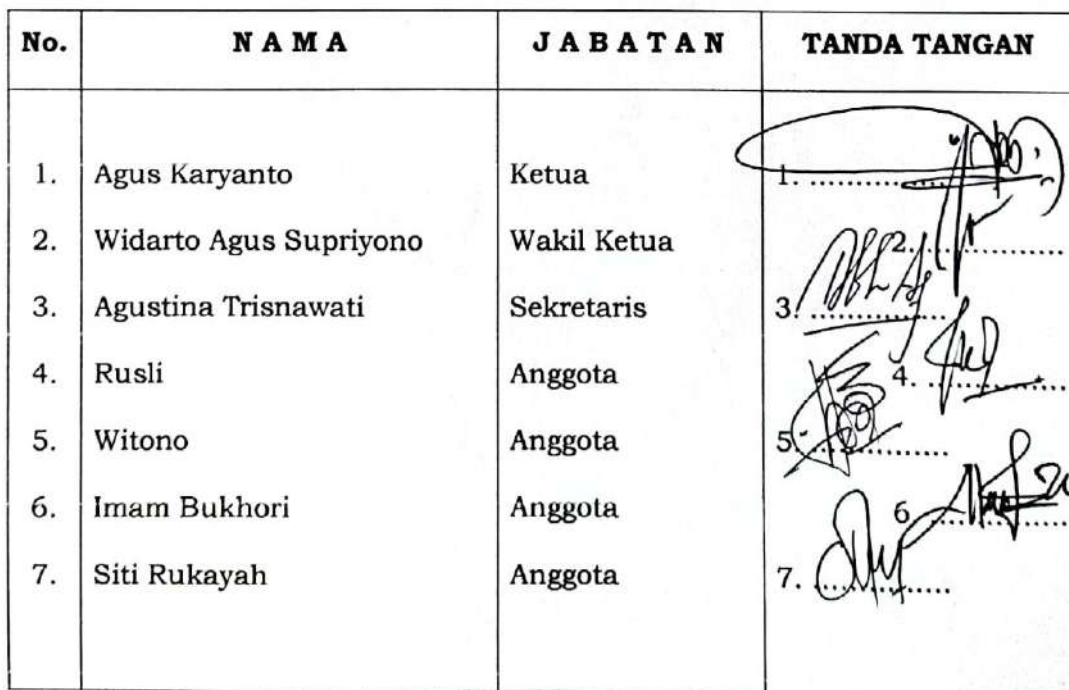 No. N A M A J A B A T A N TANDA TANGAN
1. Agus Karyanto Ketua 1. ..............
2. Widarto Agus Supriyono Wakil Ketua 2. ..............
3. Agustina Trisnawati Sekretaris 3. ..............
4. Rusli Anggota 4. ..............
5. Witono Anggota 5. ..............
6. Imam Bukhori Anggota 6. ..............
7. Siti Rukayah Anggota 7. ..............